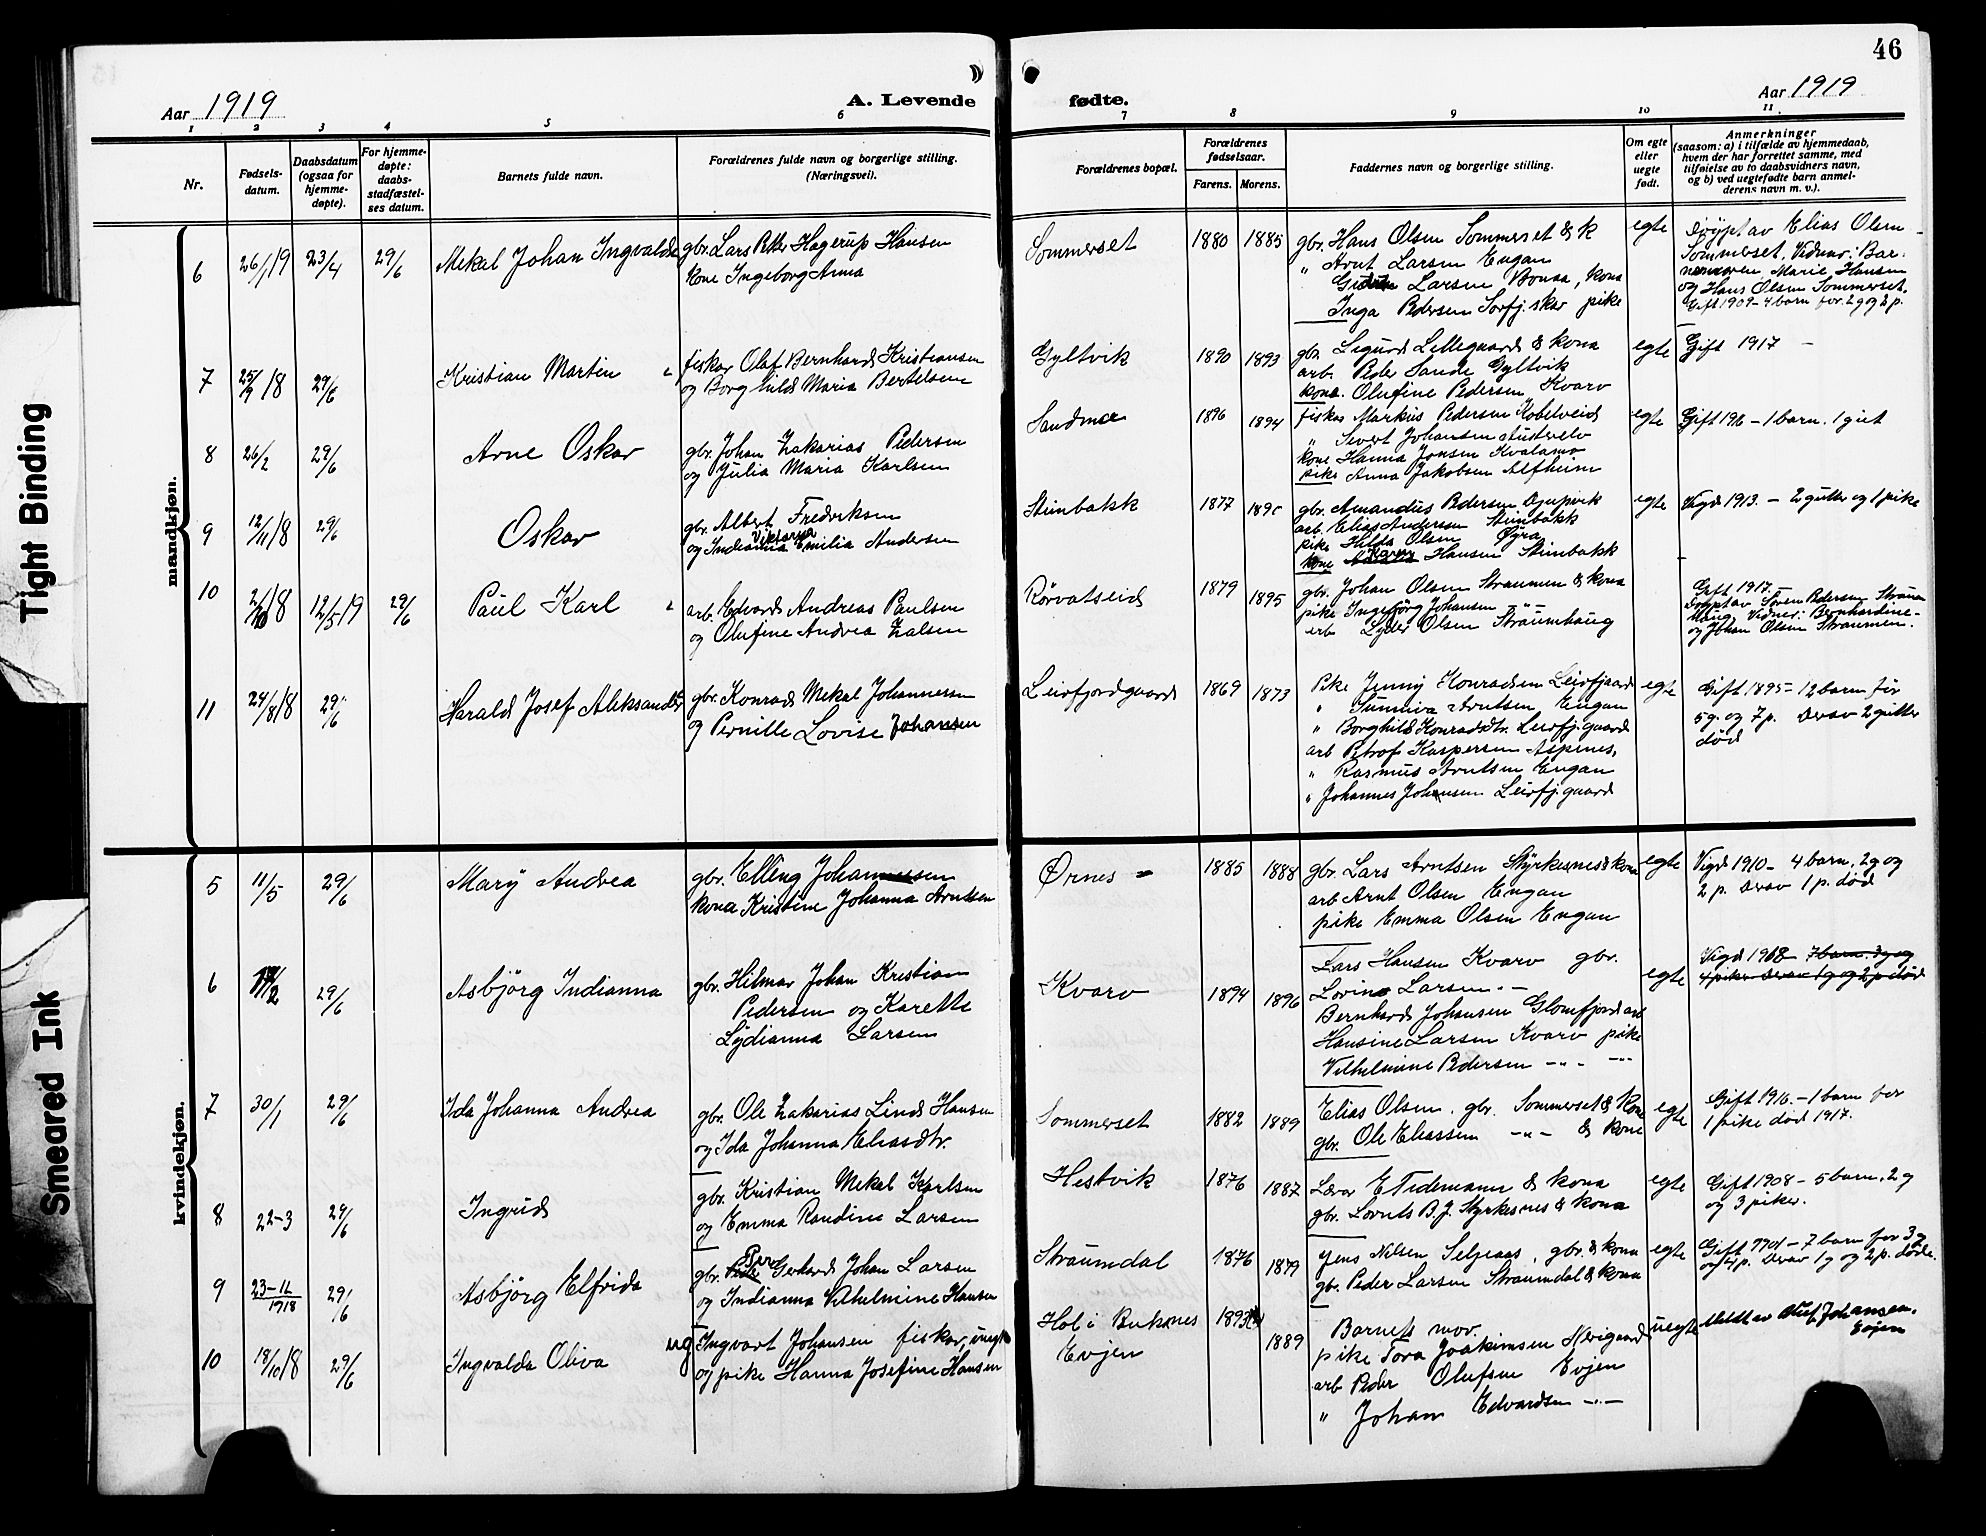 46
Aar 1919
A. Levende
fødte.
Aar 1919
1 2 3 4 5 6 7 8 9 10 11
Nr.
Fødsels-
datum.
Daabsdatum
(ogsaa for
hjemme-
døpte).
For hjemme-
døpte:
daabs-
stadfæstel-
ses datum.
Barnets fulde navn.
Forældrenes fulde navn og borgerlige stilling.
(Næringsvei).
Forældrenes bopæl.
Forældrenes
fødselsaar.
Farens. Morens.
Faddernes navn og borgerlige stilling.
Om egte
eller
uegte
født.
Anmerkninger
(saasom: a) i tilfælde av hjemmedaab,
hvem der har forrettet samme, med
tilføielse av to daabsvidners navn,
og b) ved uegtefødte barn anmel-
derens navn m. v.).
mandkjøn.
6 26/1 19 23/4 29/6 Mekal Johan Ingvald
gbr. Lars Peter Hagerup Hansen
kone Ingeborg Anna
Sommerset 1880 1885
gbr. Hans Olsen Sommerset & k
" Arnt Larsen Engan
Larsen Bonaa, kona
Inga Pedersen Sørfj.skar pike
egte
Døypt av Elias Olsen
Sommerset. Vidner: Bar-
Marie Hansen
og Hans Olsen Sommerset.
Gift 1909 - 4 barn før. 2 g og 2 p.
7 25/9 18 29/6 Kristian Martin
fisker Olaf Bernhard Kristiansen
og Borghild Maria Bertelsen
Gyltvik 1890 1893
gbr. Sigurd Lillegaard & kona
arb. Peder Sande Gyltvik
kona. Olufine Pedersen Kvarv
egte Gift 1917 -
8 26/2 29/6 Arne Oskar
gbr. Johan Zakarias Pedersen
og Julia Maria Karlsen
Sandmæ 1896 1894
fisker Markus Pedersen Kobelveid
" Sivert Johansen Austerelv
kone Hanna Jonsen Kvalamo
pike Anna Jakobsen Alfheim
egte Gift 1916 - 1 barn. 1 gut
9 12/11 18 29/6 Oskar
gbr. Albert Fredriksen
Viktoria
og Indianna Emilia Andersen
Steinbakk 1877
gbr. Amandus Pedersen
arb. Elias Andersen Steinbakk
pike Hilda Olsen Øyra
kone Karen Hansen Steinbakk
egte Vigd 1913. - 2 gutter og 1 pike
10 2/10 18 12/5-19 29/6 Paul Karl
arb. Edvard Andreas Paulsen
og Olufine Andrea Zalsen
Rørvatseid 1879 1895
gbr. Johan Olsen Straumen & kona
pike Ingebjörg Johansen - " -
arb Lyder Olsen Straumhaug
Gift 1917.
Døypt av Søren Pedersen Straum-
haug. Vidner: Bernhardine
og Johan Olsen Straumen.
11 24/8 18 29/6 Harald Josef Aleksander
gbr. Konrad Mekal Johannessen
og Pernille Lovise Johansen
Leirfjordgaard 1869 1873
Pike Jenny Konradsen Leirfjgaard
" Sunniva Arntsen Engan
" Borghild Konradsdtr. Leirfj.gaard
arb Petrof Kaspersen Aspenes,
" Rasmus Arntsen Engan
" Johannes Johansen Leirfj.gaard
egte
Gift 1895 - 12 barn før
5 g. og 7 p. Derav 2 gutter
død
kvindekjøn.
5 11/5 29/6 Mary Andrea
gbr. Elling Johannessen
kona Kristine Johanna Arntsen
Ørnes 1885 1888
gbr. Lars Arntsen Styrkesnes & kona
arb Arnt Olsen Engan
pike Emma Olsen Engan
egte
Vigd 1910 - 4 barn, 2 g og
2 p. Derav 1 p. død
6 29/6 Asbjörg Indianna
gbr. Hilmar Johan Kristian
Pedersen og Karette
Lydianna Larsen
Kvarv 1894 1896
Lars Hansen Kvarv gbr.
Lovine Larsen - " -
Bernhard Johansen Glomfjord arb
Hansine Larsen Kvarv pike
Vilhelmine Pedersen - " - - " -
egte
Vigd 1918 7 barn. 3 g og
4 piker derav 1 g og 2 p. død
7 30/1 29/6 Ida Johanna Andrea
gbr. Ole Zakarias Lind Hansen
og Ida Johanna Eliasdtr.
Sommerset 1882 1889
Elias Olsen. gbr. Sommerset & kone
gbr. Ole Eliassen - " - & kone
egte
Gift 1916. - 1 barn før
1 pike død 1917.
8 22-3 29/6 Ingrid
gbr. Kristian Mekal Karlsen
og Emma Randine Larsen
Hestvik 1876 1887
Lærer E Tidemann & kona
gbr. Lornts B. J. Styrkesnes & kona
egte
Gift 1908 - 5 barn. 2 g
og 3 piker.
9 23-12 1918 29/6 Asbjörg Elfrida
gbr. Gerhard Johan Larsen
og Indianna Vilhelmine Hansen
Straumdal 1876 1879
Jens Nilsen Seljeaas, gbr. & kona
gbr. Peder Larsen Straumdal & kona
egte
Gift 1901 - 7 barn før 3 g
og 4 p. Derav 1 g og 2 p. døde.
10 18/10 18 29/6 Ingvalda Oliva
ug Ingvart Johansen fisker, ungk
og pike Hanna Josefine Hansen
Hol i Buknes 1893
Evjen 1889
Barnets mor.
pike Tora Joakimsen Nerigaard
arb Peder Olufsen Evjen
" Johan Edvardsen - " -
uegte
Meldt av Oluf Johansen.
Evjen
Tight Binding
Smeared Ink